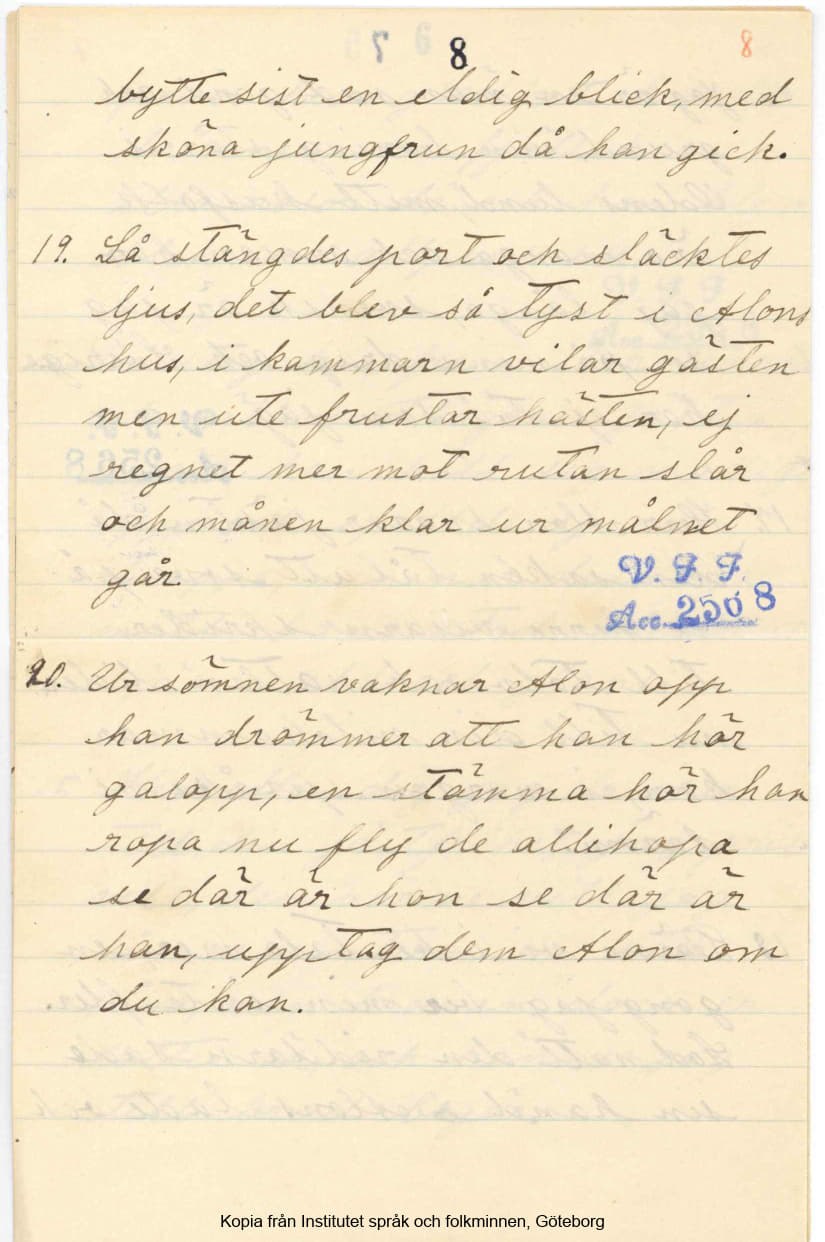 8
8
bytte sist en eldig blick, med
sköna jungfrun då han gick.
19. Så stängdes port och släcktes
ljus, det blev så tyst i Alons
hus, i kammarn vilar gästen
men ute frustar hästen, ej
regnet mer mot rutan slår
och månen klar ur målnet
går.
V. F. F.
Acc. 2508
20. Ur sömnen vaknar Alon opp
han drömmer att han hör
galopp, en stämma hör han
ropa nu fly de allihopa
se där är hon se där är
han, upptag dem Alon om
du kan.
Kopia från Institutet språk och folkminnen, Göteborg